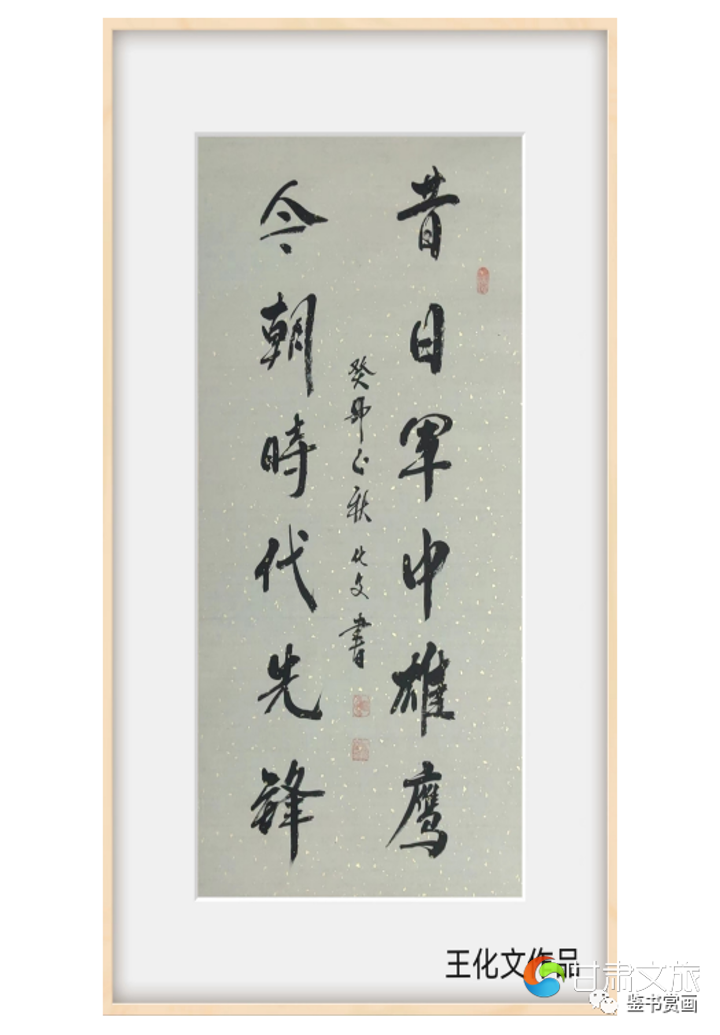 昔日軍中雄鹰
今朝時代先鋒
癸卯之秋化文書
王化文作品
甘肃文旅
鉴书赏画